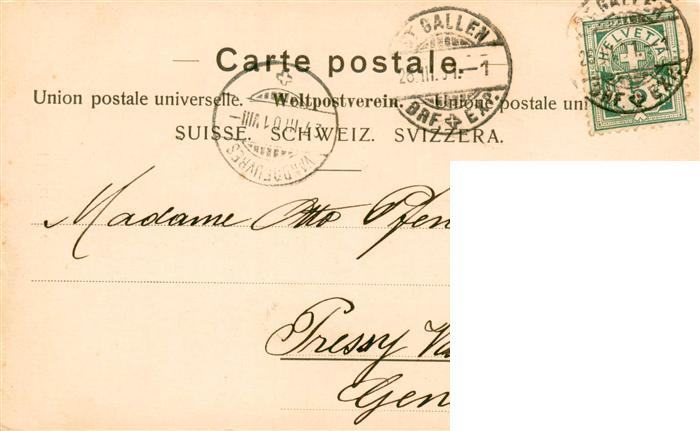 Carte postale.
Union postale universelle. — Weltpostverein. — Unione postale uni
SUISSE. SCHWEIZ. SVIZZERA.
ST GALLEN
28.III.01.—1
BRF. EXP.
ST GALLEN
BRF. EXP.
HELVETIA
5
VANDOEUVRES
29.III.01.VIII
Madame Otto Pfen
Pressy Va
Gen